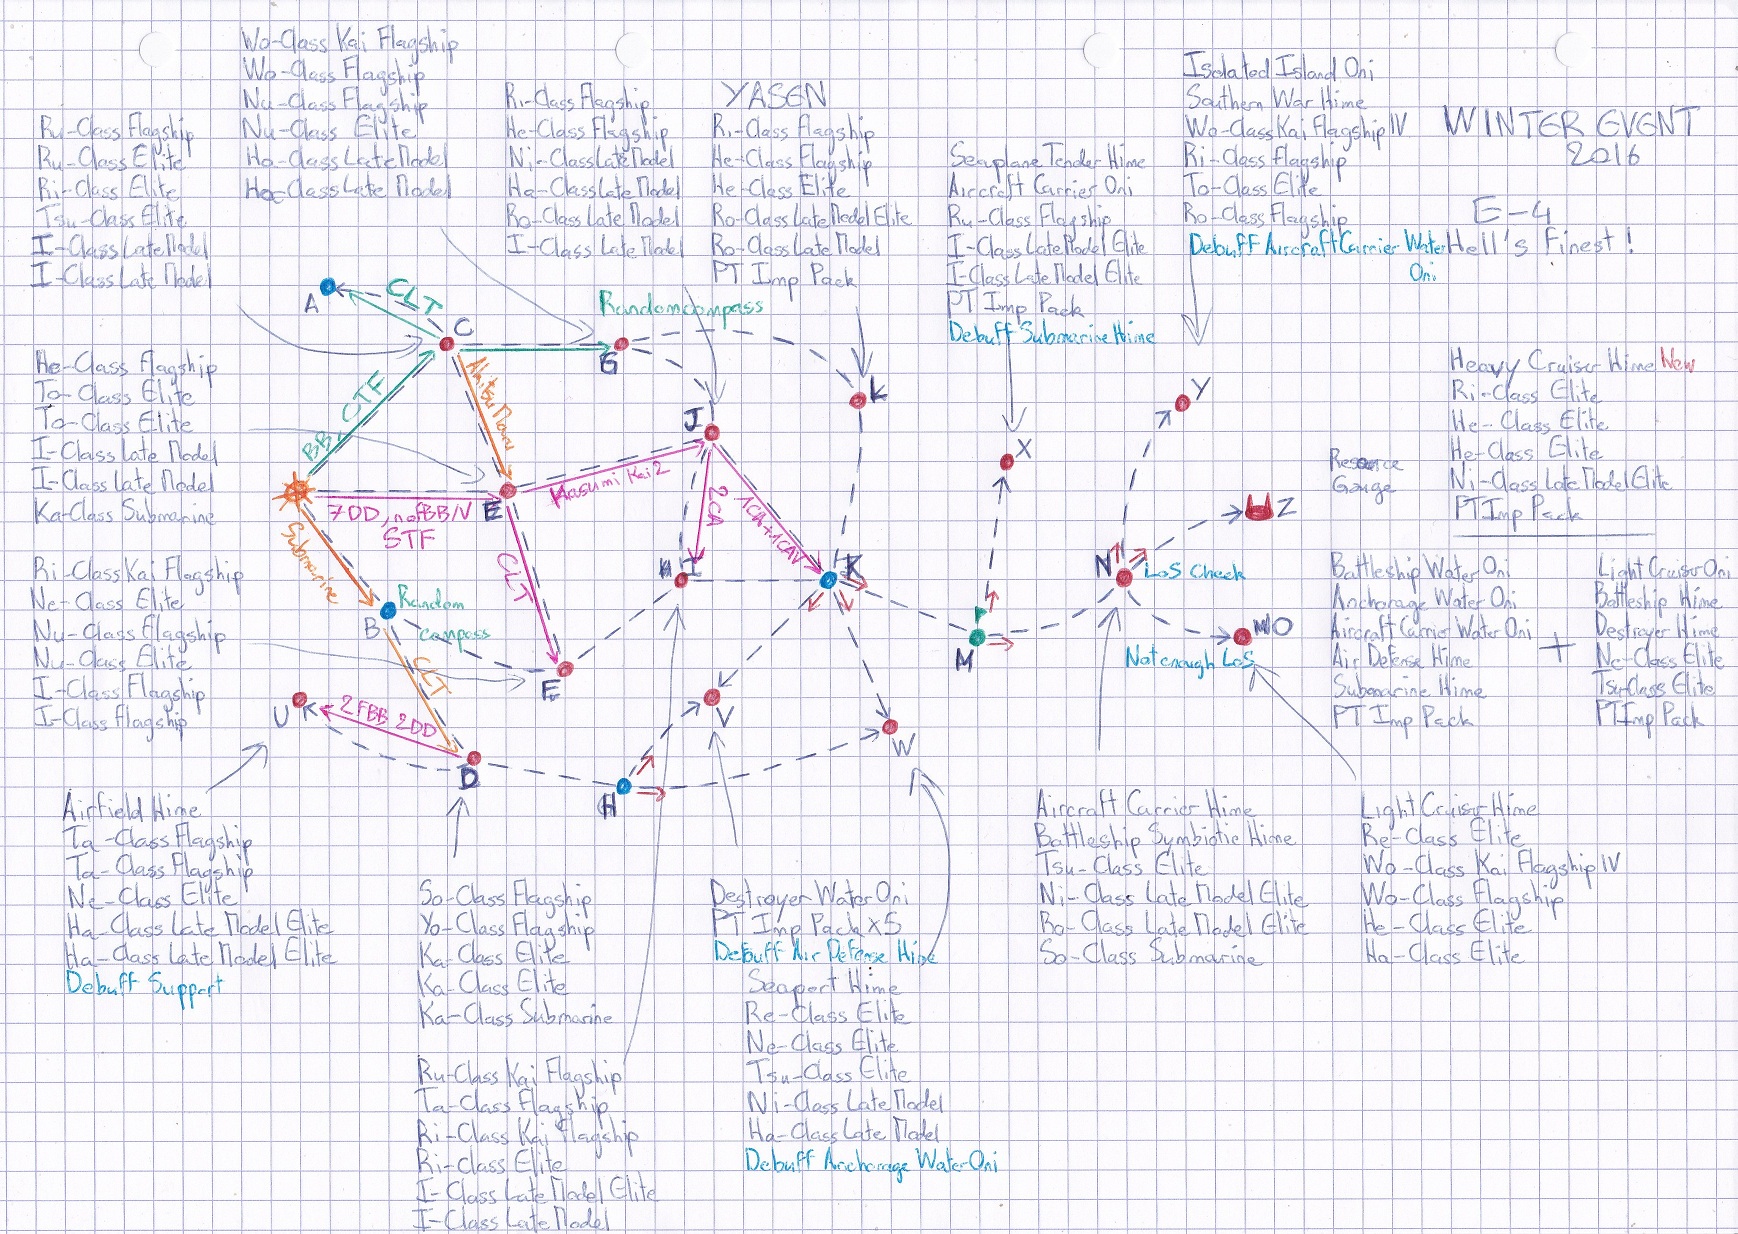 WINTER EVENT
2016
E-4
Hell's Finest!
Wo-Class Kai Flagship
Wo-Class Flagship
Nu-Class Flagship
Nu-Class Elite
Ha-Class Late Model
Ha-Class Late Model
Ru-Class Flagship
Ru-Class Elite
Ri-Class Elite
Tsu-Class Elite
I-Class Late Model
I-Class Late Model
Ri-Class Flagship
He-Class Flagship
Ni-Class Late Model
Ha-Class Late Model
Ro-Class Late Model
I-Class Late Model
YASEN
Ri-Class Flagship
He-Class Flagship
He-Class Elite
Ro-Class Late Model Elite
Ro-Class Late Model
PT Imp Pack
Seaplane Tender Hime
Aircraft Carrier Oni
Ru-Class Flagship
I-Class Late Model Elite
I-Class Late Model Elite
PT Imp Pack
Debuff Submarine Hime
Isolated Island Oni
Southern War Hime
Wo-Class Kai Flagship IV
Ri-Class Flagship
To-Class Elite
Ro-Class Flagship
Debuff Aircraft Carrier Water
Oni
He-Class Flagship
To-Class Elite
To-Class Elite
I-Class Late Model
I-Class Late Model
Ka-Class Submarine
Ri-Class Kai Flagship
Ne-Class Elite
Nu-Class Flagship
Nu-Class Elite
I-Class Flagship
I-Class Flagship
A
CLT
C
Random compass
G
K
BB, CTF
Akitsu Maru
J
E
Kasumi Kai 2
7DD, no FBB/V
STF
2CA
1CA+1CAV
Submarine
CLT
I
K
B
Random
compass
E
CLT
U
2FBB 2DD
D
H
V
W
M
X
N
LoS Check
Y
Z
WO
Not enough LoS
Heavy Cruiser Hime New
Ri-Class Elite
He-Class Elite
He-Class Elite
Ni-Class Late Model Elite
PT Imp Pack
Gauge
Battleship Water Oni
Anchorage Water Oni
Aircraft Carrier Water Oni
Air Defense Hime
Submarine Hime
PT Imp Pack
+
Light Cruiser Oni
Battleship Hime
Destroyer Hime
Ne-Class Elite
Tsu-Class Elite
PT Imp Pack
Airfield Hime
Ta-Class Flagship
Ta-Class Flagship
Ne-Class Elite
Ha-Class Late Model Elite
Ha-Class Late Model Elite
Debuff Support
So-Class Flagship
Yo-Class Flagship
Ka-Class Elite
Ka-Class Elite
Ka-Class Submarine
Ru-Class Kai Flagship
Ta-Class Flagship
Ri-Class Kai Flagship
Ri-Class Elite
I-Class Late Model Elite
I-Class Late Model
Destroyer Water Oni
PT Imp Pack x5
Debuff Air Defense Hime
Seaport Hime
Re-Class Elite
Ne-Class Elite
Tsu-Class Elite
Ni-Class Late Model
Ha-Class Late Model
Debuff Anchorage Water Oni
Aircraft Carrier Hime
Battleship Symbiotic Hime
Tsu-Class Elite
Ni-Class Late Model Elite
Ro-Class Late Model Elite
So-Class Submarine
Light Cruiser Hime
Re-Class Elite
Wo-Class Kai Flagship IV
Wo-Class Flagship
He-Class Elite
Ha-Class Elite